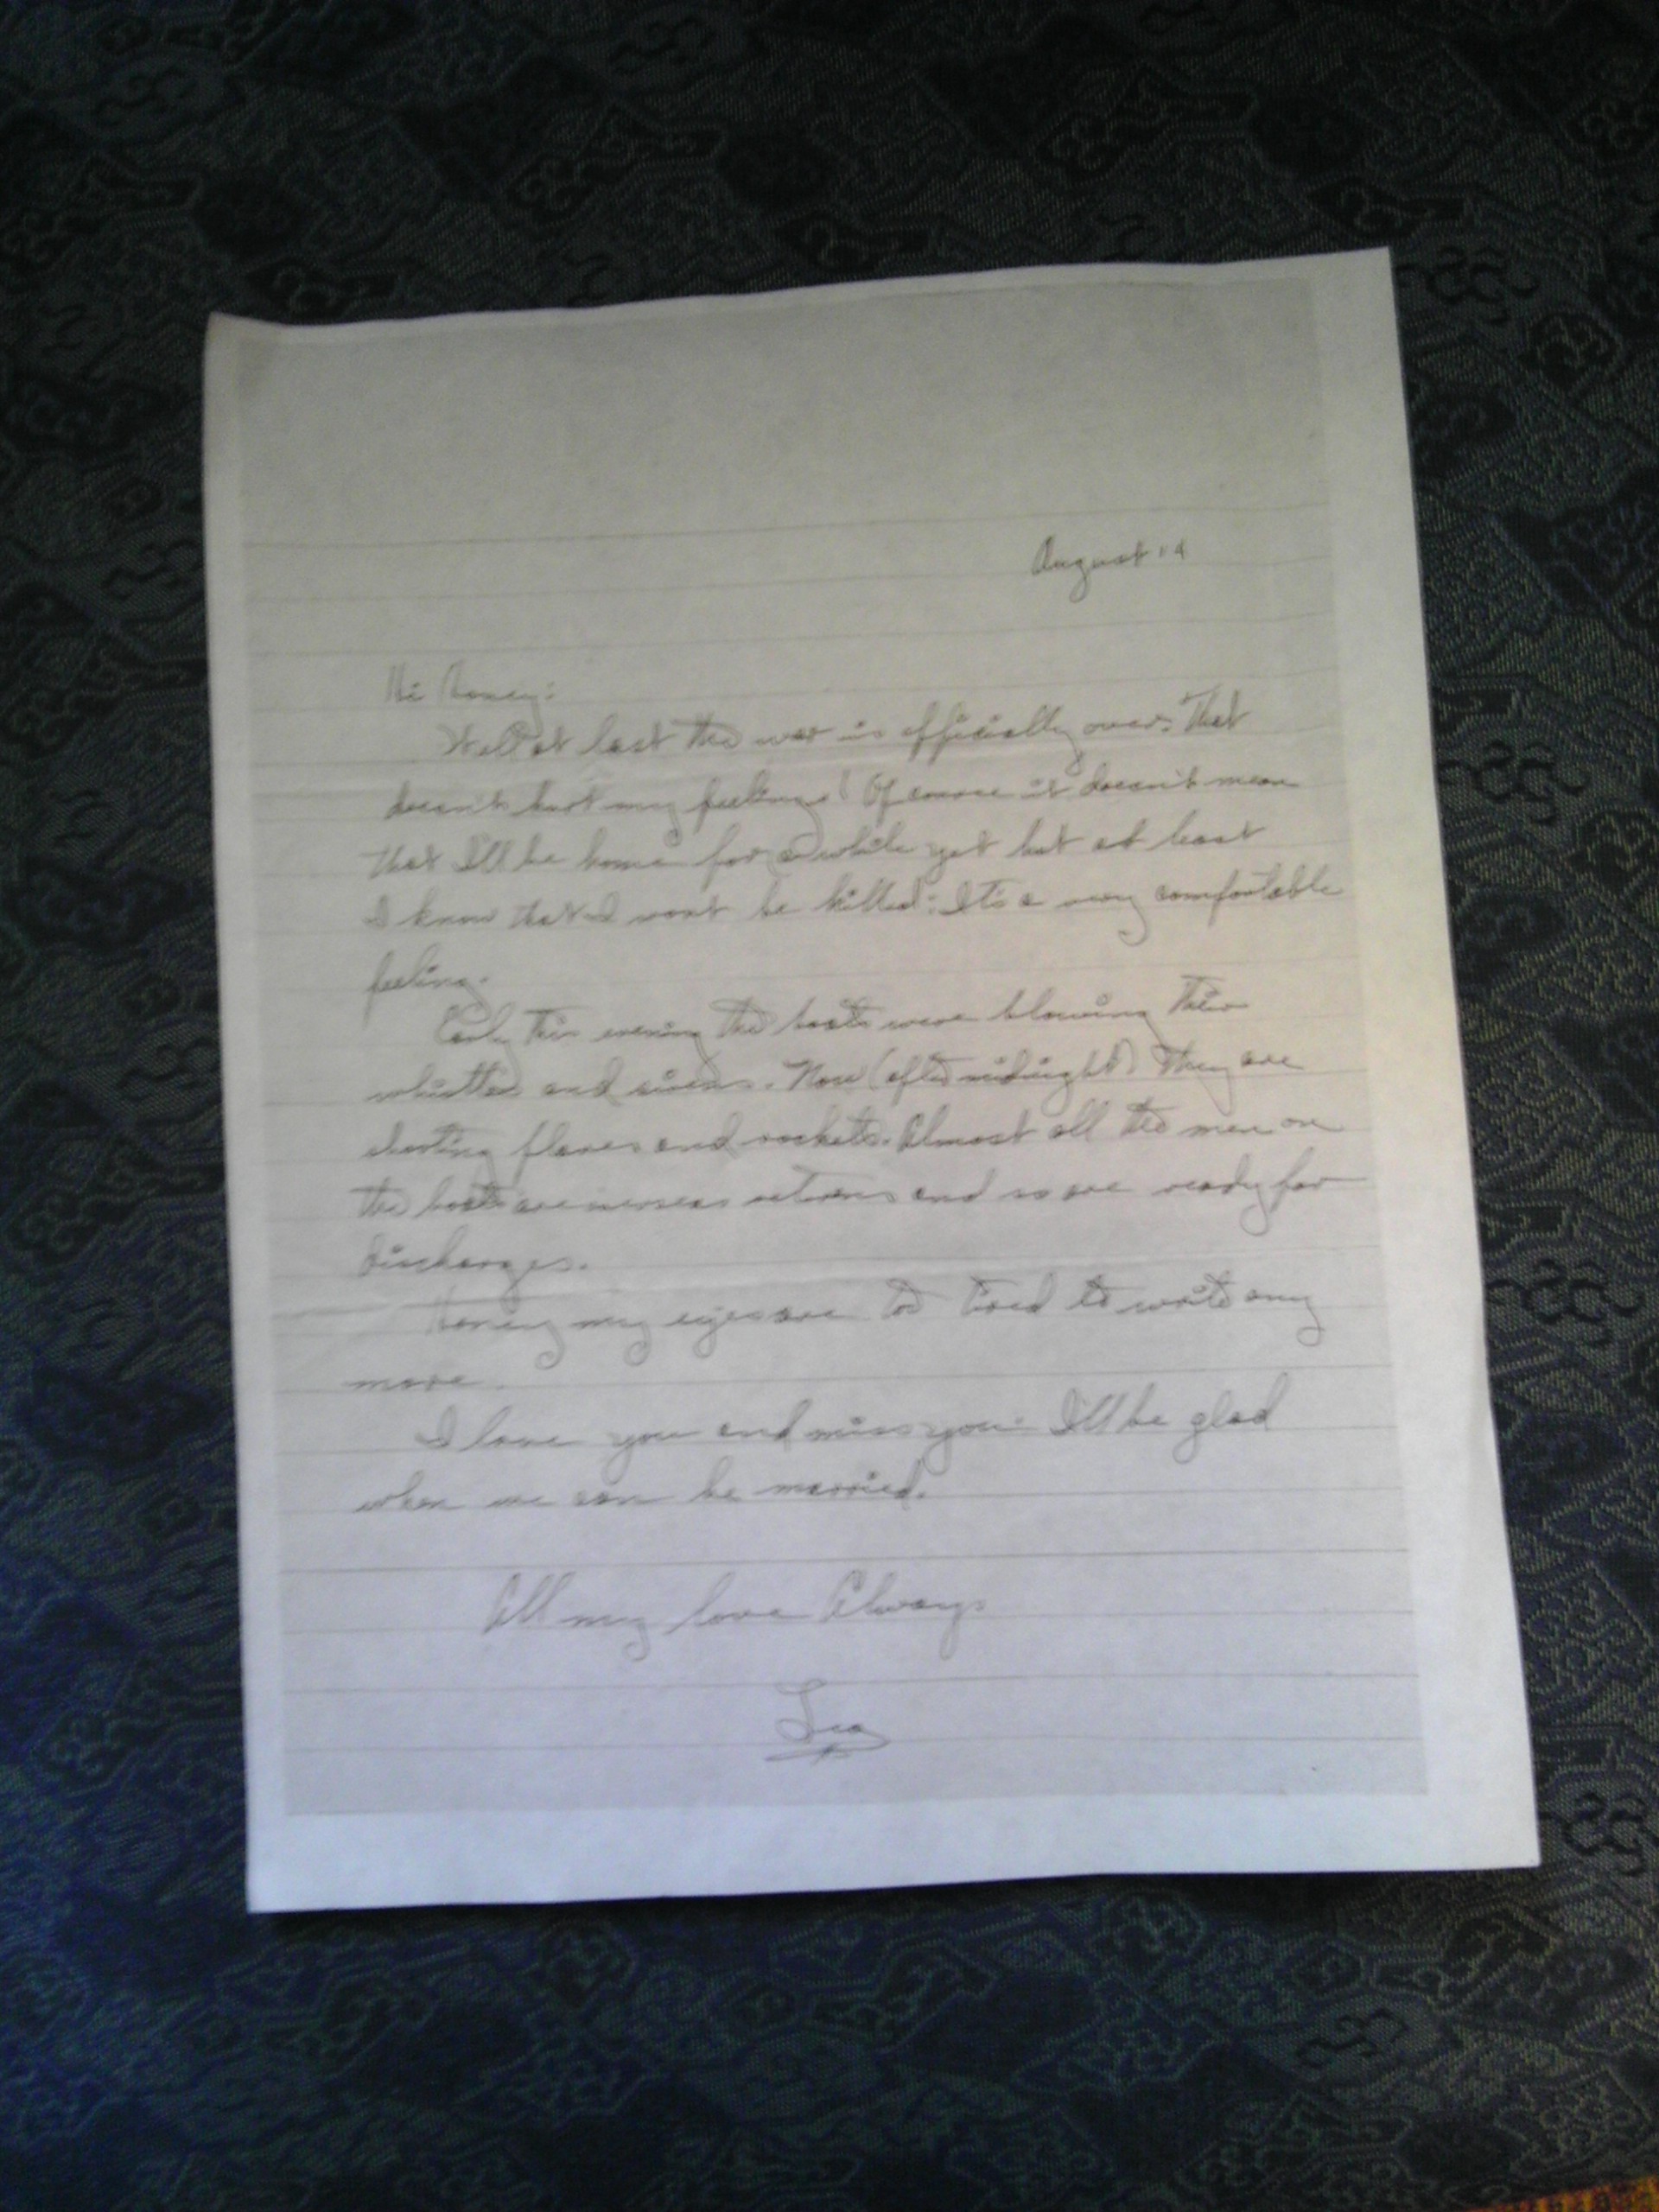 August 14
Hi Honey:
Well at last the war is officially over. That
doesn't hurt my feelings! Of course it doesn't mean
that I'll be home for a while yet but at least
I know that I wont be killed. It's a very comfortable
feeling.
Early this evening the boats were blowing their
whistles and sirens. Now (after midnight) they are
shooting flares and rockets. Almost all the men on
the boats are overseas returns and so are ready for
discharges.
Honey my eyes are too tired to write any
more.
I love you and miss you. I'll be glad
when we can be married.
All my love Always
Leo